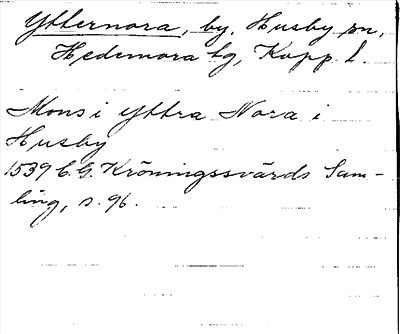 Ytternora, by, Husby sn,
Hedemora tg, Kopp. l.
Mons i yttra Nora i
Husby
1539 C. G. Kröningssvärds Sam-
ling, s. 96.